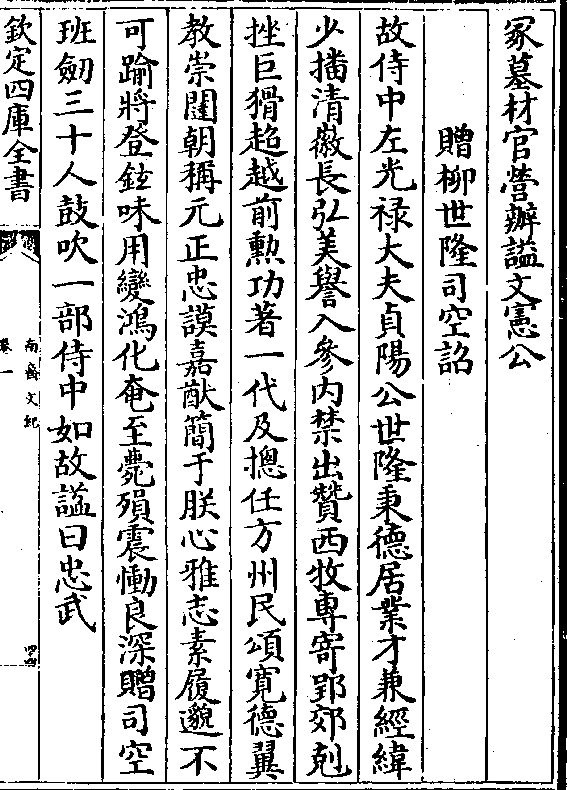 冢墓材官營辦諡文憲公
贈柳世隆司空詔
故侍中左光禄大夫貞陽公世隆秉德居業才兼經緯
少播清徽長弘美譽入參内禁出贊西牧専寄郢郊剋
挫巨猾超越前勲功著一代及摠任方州民頌寛德翼
教崇闥朝稱元正忠謨嘉猷簡于朕心雅志素履邈不
可踰將登鉉味用變鴻化奄至薨殞震慟良深贈司空
班劒三十人鼓吹一部侍中如故諡曰忠武
欽定四庫全書
南齊文紀
卷一
四四